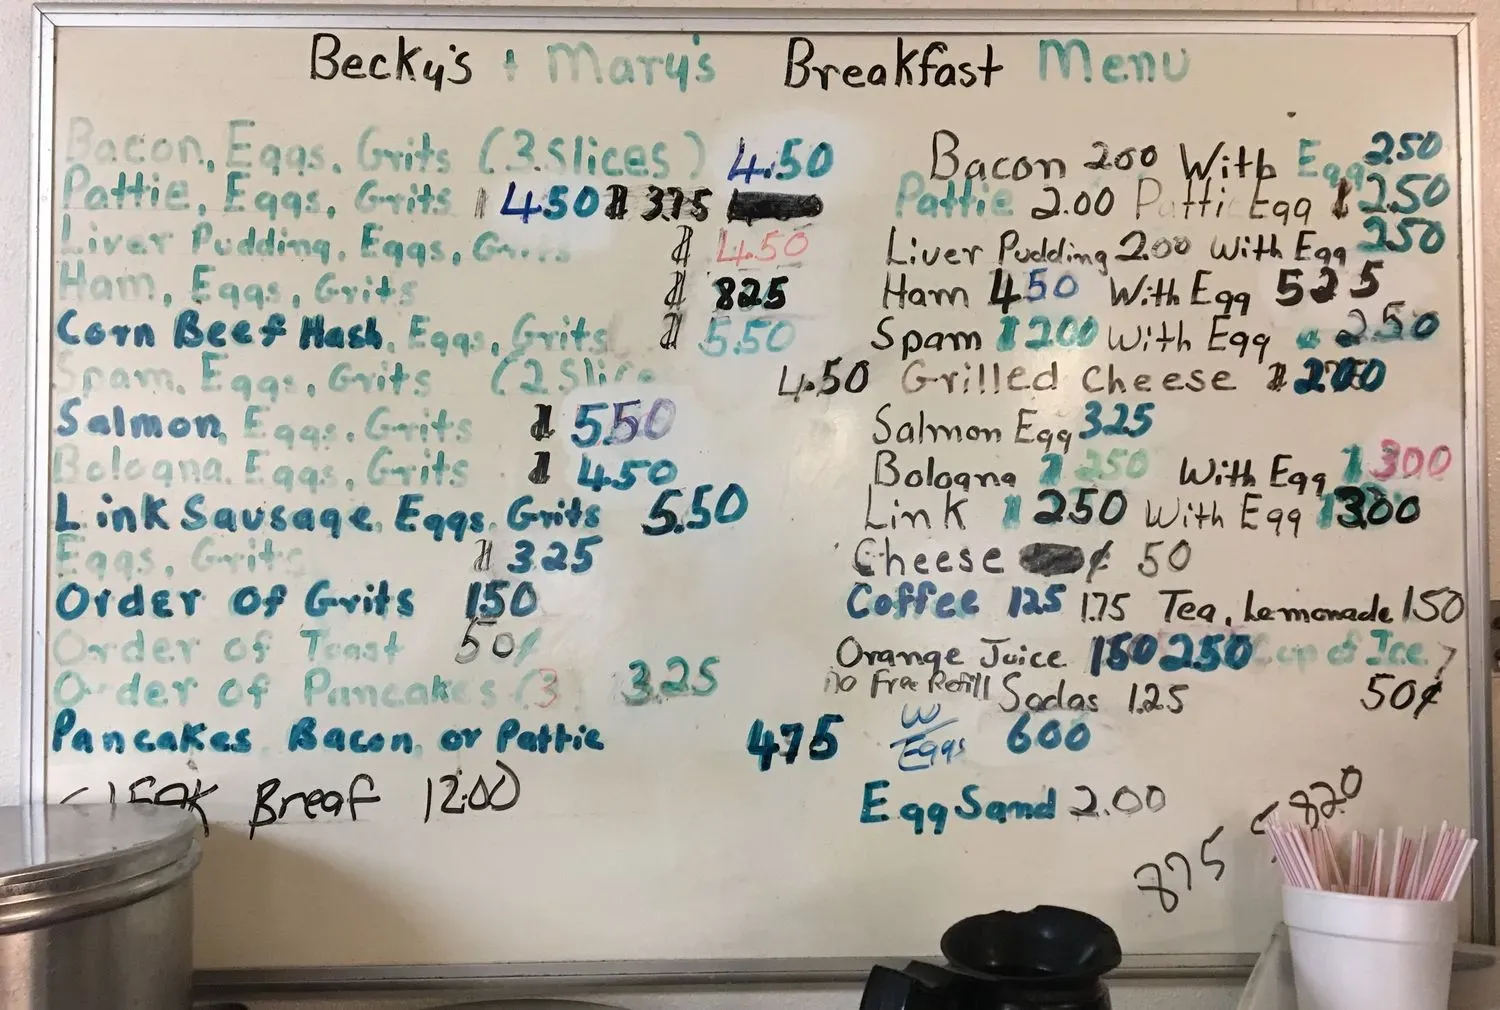 Becky's + Mary's Breakfast Menu
Bacon, Eggs, Grits (3 Slices) 4.50
Pattie, Eggs, Grits $ 4.50 $ 3.75
Liver Pudding, Eggs, Grits $ 4.50
Ham, Eggs, Grits $ 825
Corn Beef Hash, Eggs, Grits $ 5.50
Spam, Eggs, Grits (2 Slice 4.50
Salmon, Eggs, Grits $ 5.50
Bologna, Eggs, Grits $ 4.50
Link Sausage, Eggs, Grits 5.50
Eggs, Grits $ 3.25
Order of Grits 150
Order of Toast 50¢
Order of Pancakes (3 3.25
Pancakes Bacon, or Pattie 475
Breaf 12.00
Bacon 200 With Egg 250
Pattie 2.00 Patti Egg $ 250
Liver Pudding 2.00 With Egg 250
Ham 450 With Egg 525
Spam $ 200 With Egg 250
Grilled Cheese $
Salmon Egg 325
Bologna $ 250 With Egg $ 300
Link $ 250 With Egg $ 300
Cheese ¢ 50
Coffee 125 1.75 Tea, Lemonade 150
Orange Juice 150 250 Cup of Ice
No Free Refill Sodas 1.25 50¢
W/ Eggs 600
Egg Sand 2.00
875 820